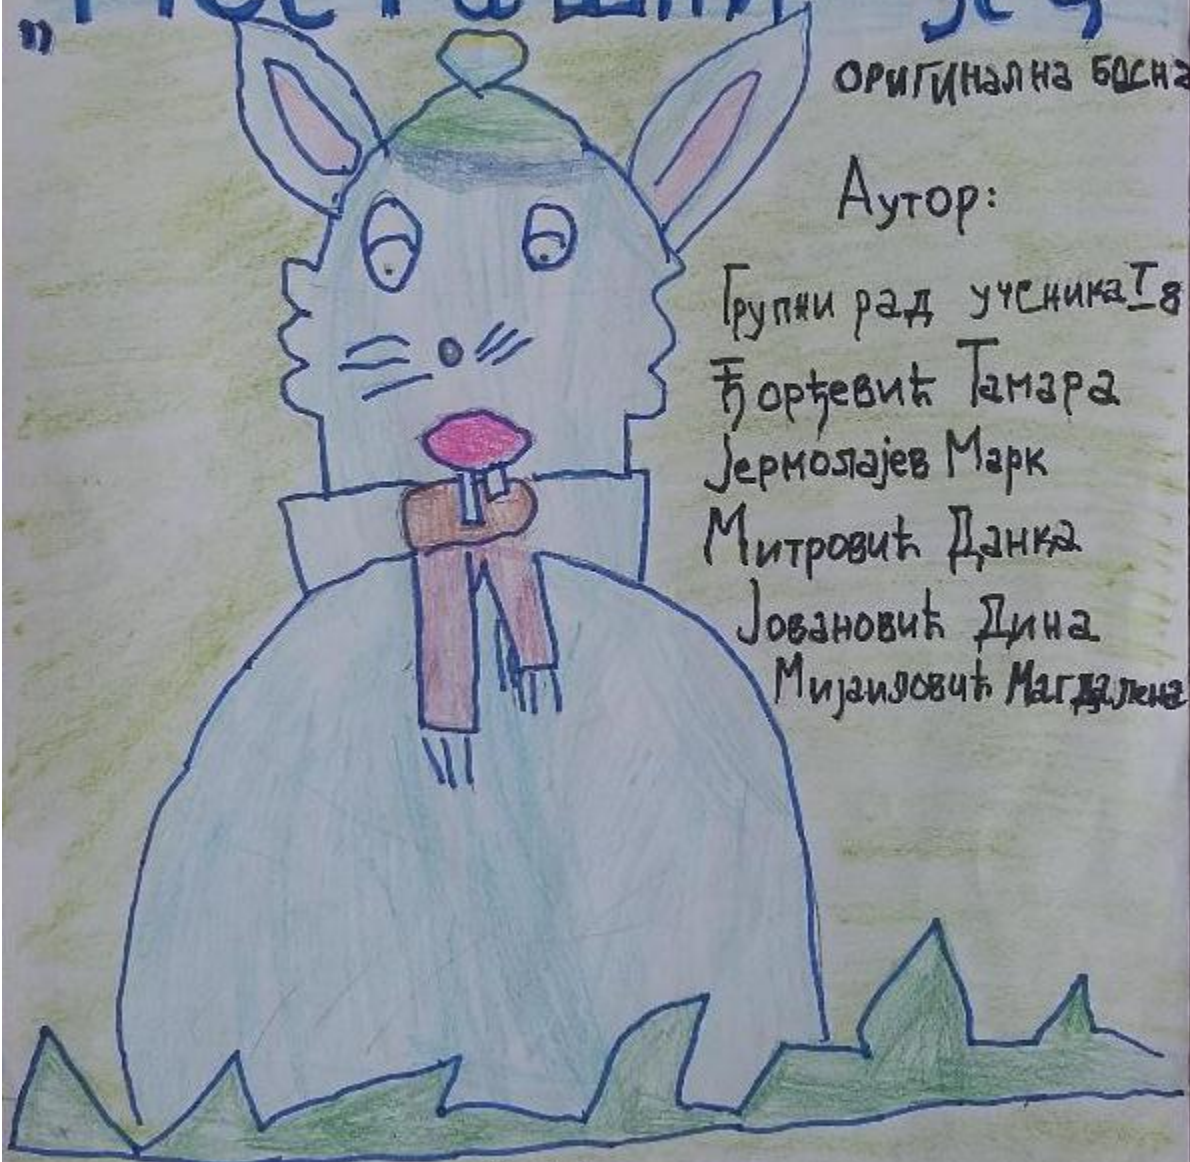 оригинална басна
Аутор:
Групни рад ученика I8
Ђорђевић Тамара
Јермолајев Марк
Митровић Данка
Јовановић Дина
Мијаиловић Магдалена